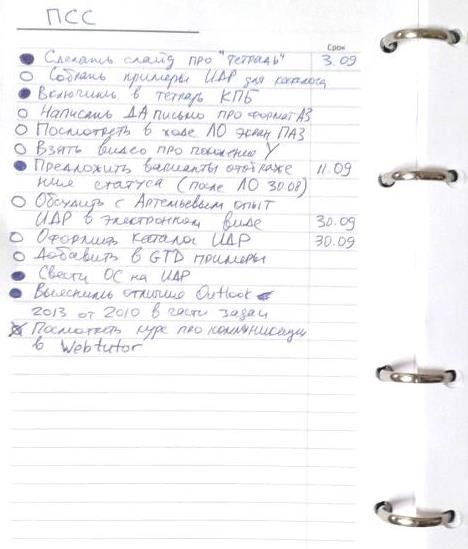 ПСС
Срок
Сделать слайд про "тетрадь" 3.09
Собрать примеры ИДР для каталога
Включить в тетрадь КПБ
Написать ДА письмо про формат АЗ
Посмотреть в ходе ЛО экран ПАЗ
Взять видео про поколение Y
Предложить варианты отображе 11.09
ния статуса (после ЛО 30.08)
Обсудить с Артемьевым опыт
ИДР в электронном виде 30.09
Оформить каталог ИДР 30.09
Добавить в GTD примеры
Свести ОС на ИДР
Выяснить отличие Outlook
2013 от 2010 в части задач
Посмотреть курс про коммуникации
в Webtutor